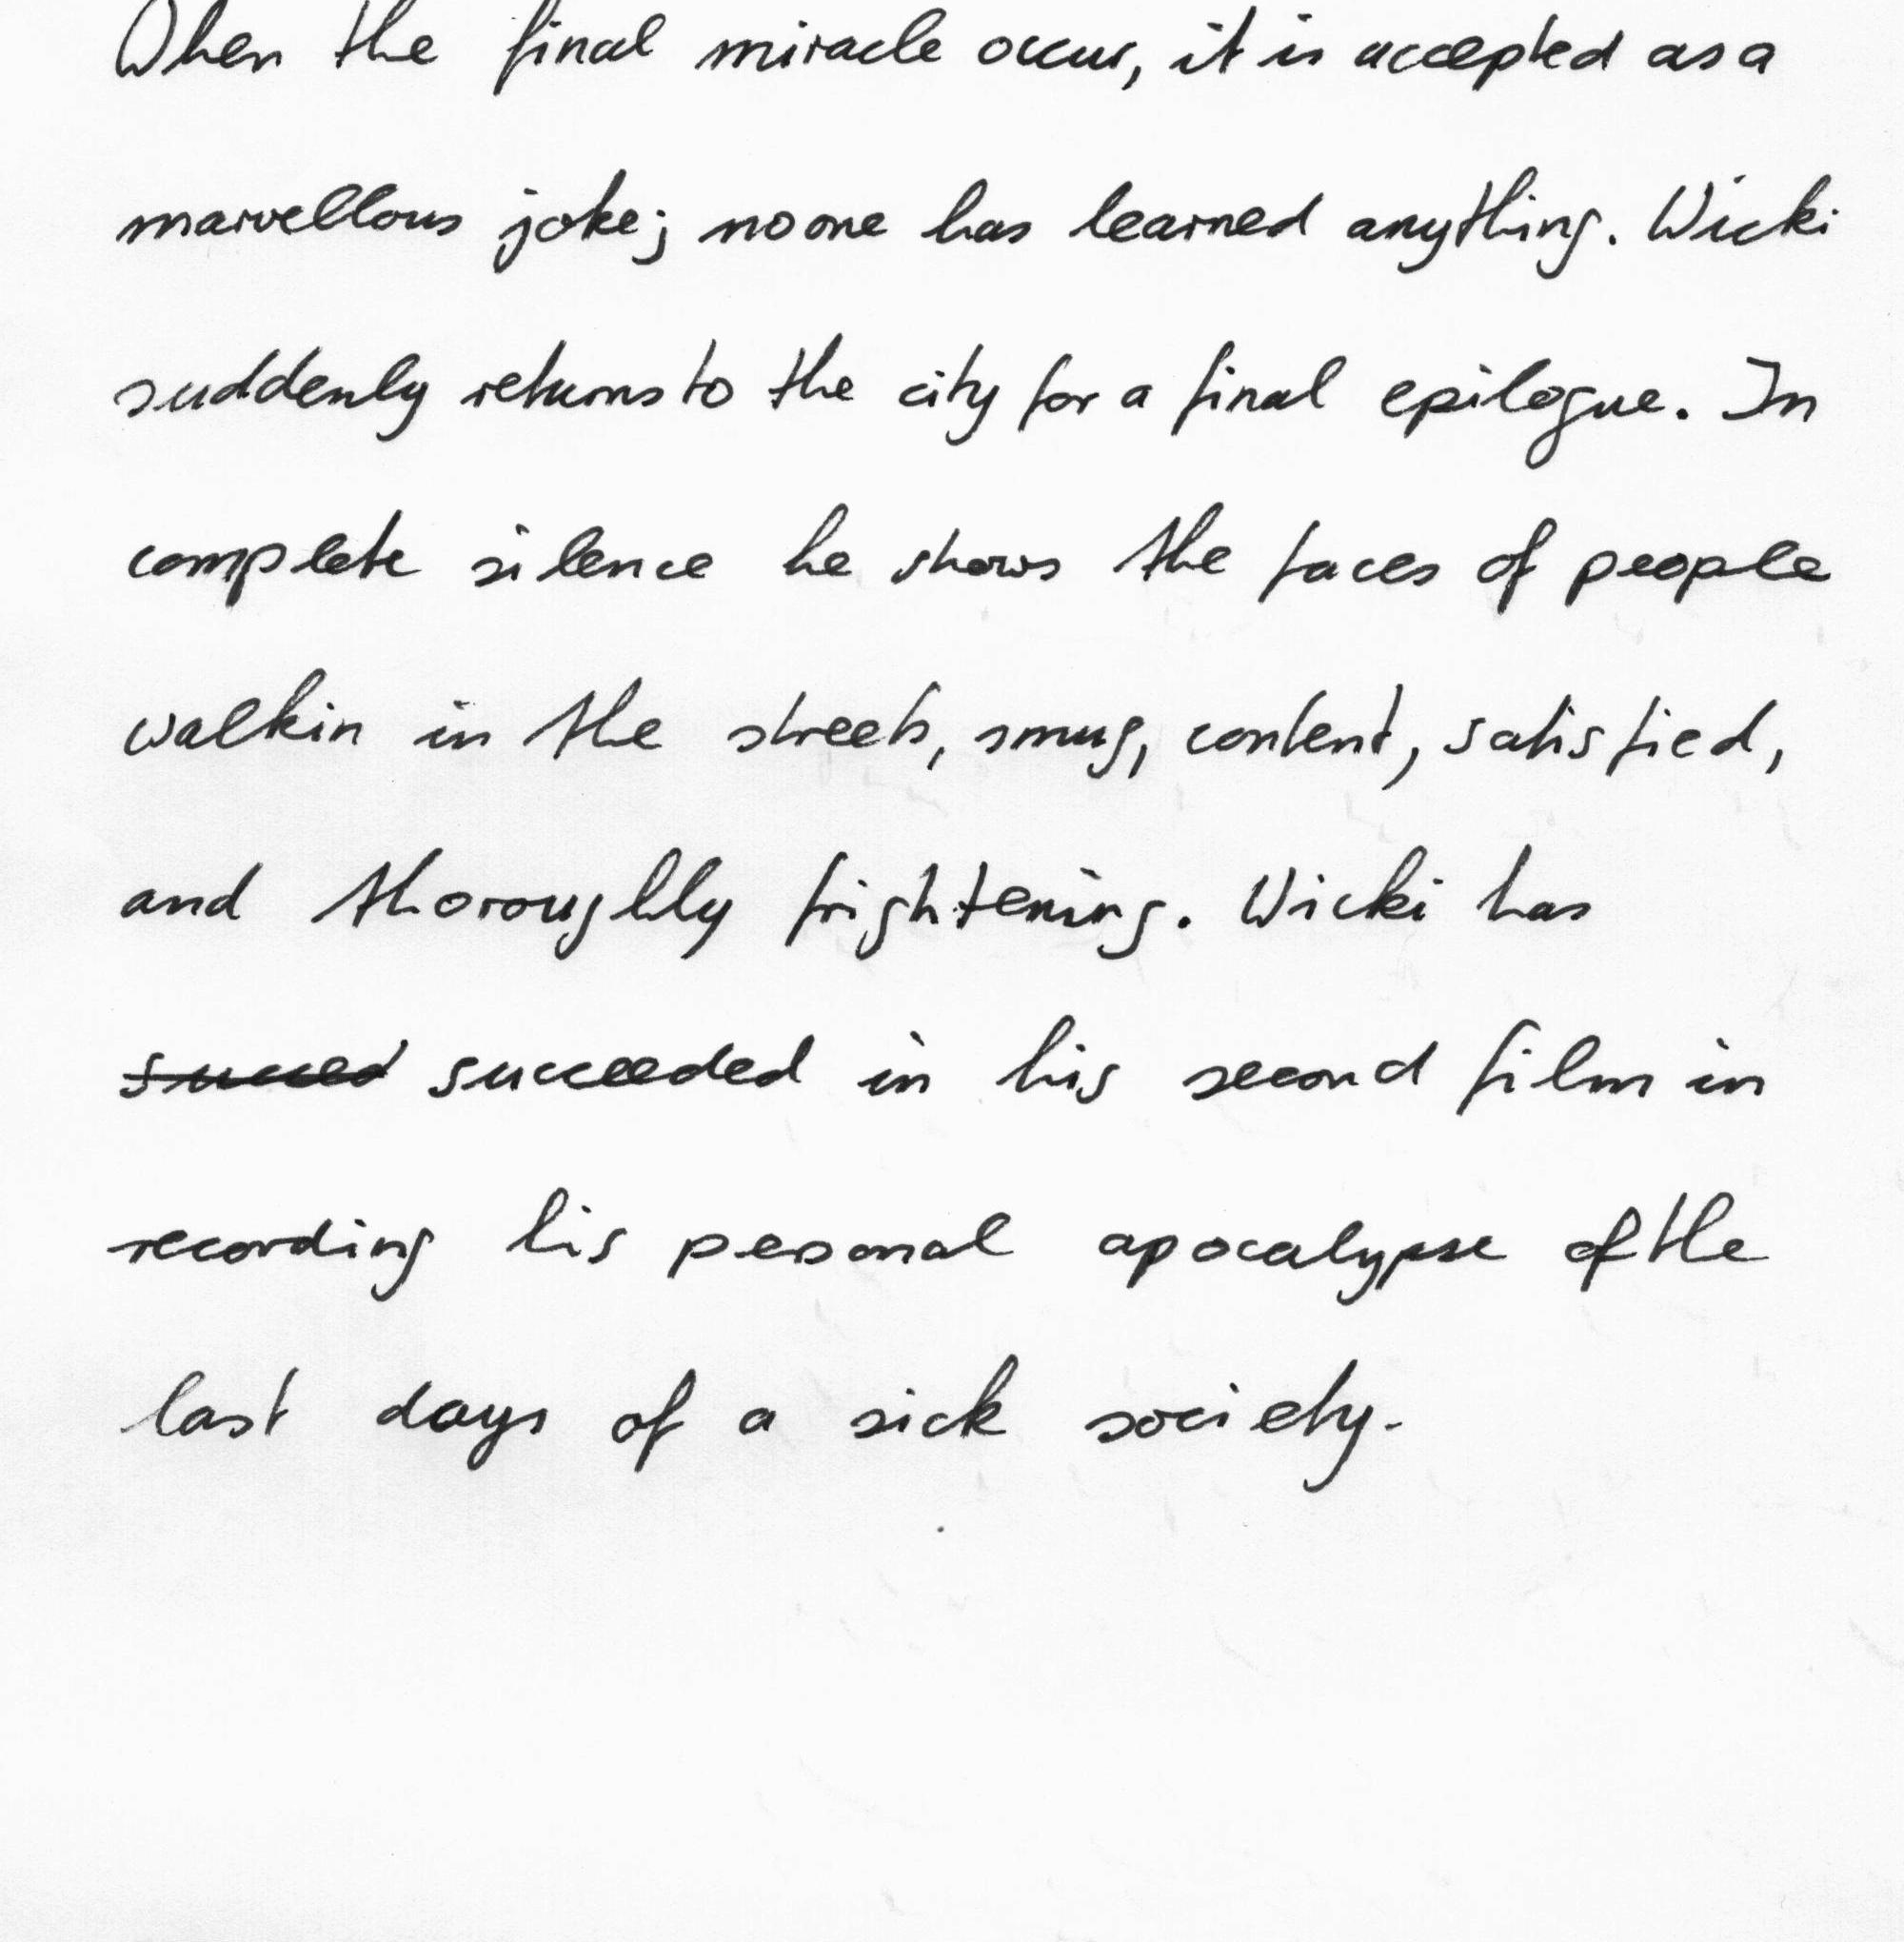 When the final miracle occur, it is accepted as a
marvellous joke; no one has learned anything. Wicki
suddenly returns to the city for a final epilogue. In
complete silence he shows the faces of people
walkin in the streets, smug, content, satisfied,
and thoroughly frightening. Wicki has
succed succeeded in his second film in
recording his personal apocalypse of the
last days of a sick society.